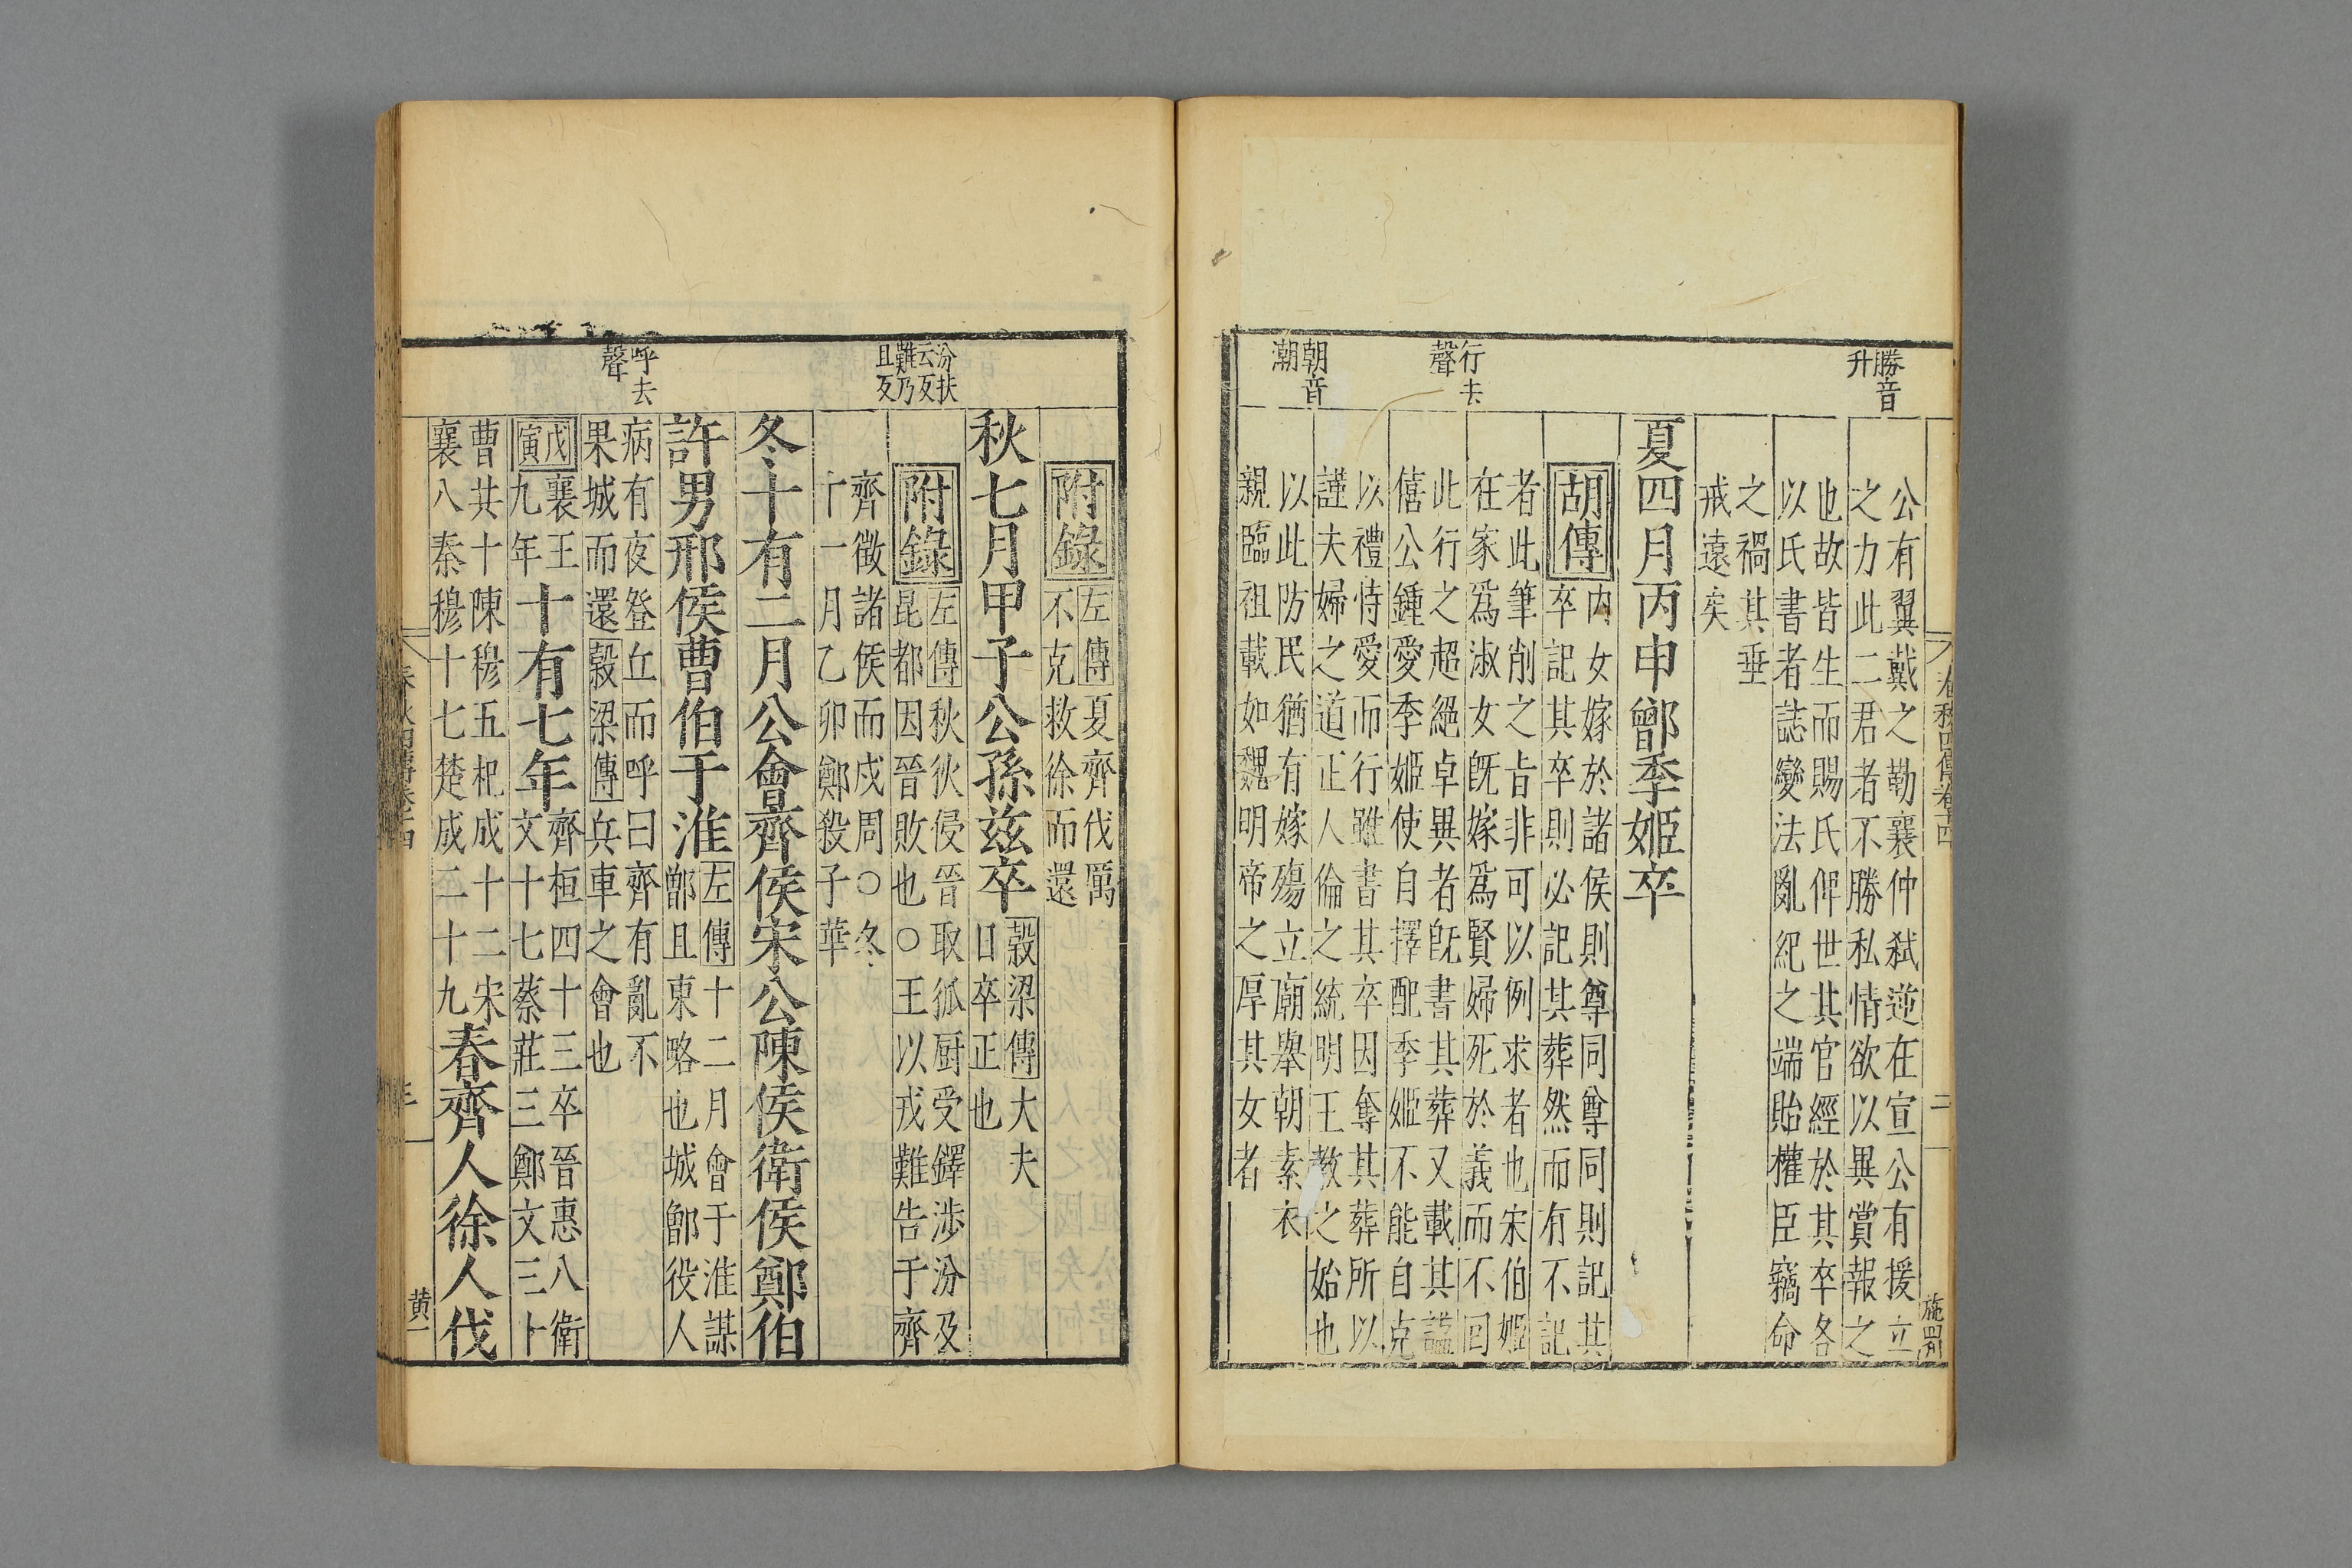 春秋四傳卷十四
二
施罰
勝音
升
行去
聲
朝音
潮
公有翼戴之勒襄仲弑逆在宣公有援立
之力此二君者不勝私情欲以異賞報之
也故皆生而賜氏俾世其官經於其卒各
以氏書者誌變法亂紀之端貽權臣竊命
之禍其垂
戒遠矣
夏四月丙申鄫季姬卒
胡傳
内女嫁於諸侯則尊同尊同則記其
卒記其卒則必記其葬然而有不記
者此筆削之旨非可以例求者也宋伯姬
在家爲淑女旣嫁爲賢婦死於義而不回
此行之超絕卓異者旣書其葬又載其謚
僖公鍾愛季姬使自擇配季姬不能自克
以禮恃愛而行雖書其卒因奪其葬所以
謹夫婦之道正人倫之統明王教之始也
以此防民猶有嫁殤立廟舉朝素衣
親臨祖載如魏明帝之厚其女者
汾扶
云反
難乃
且反
呼去
聲
附錄
左傳夏齊伐厲
不克救徐而還
秋七月甲子公孫茲卒
穀梁傳大夫
日卒正也
附錄
左傳秋狄侵晉取狐厨受鐸渉汾及
昆都因晉敗也○王以戎難告于齊
齊徵諸侯而戍周○冬
十一月乙卯鄭殺子華
冬十有二月公會齊侯宋公陳侯衛侯鄭伯
許男邢侯曹伯于淮
左傳十二月會于淮謀
鄫且東略也城鄫役人
病有夜登丘而呼曰齊有亂不
果城而還穀梁傳兵車之會也
戊寅
襄王
九年
十有七年
齊桓四十三卒晉惠八衛
文十七蔡莊三鄭文三十
曹共十陳穆五杞成十二宋
襄八秦穆十七楚成二十九
春齊人徐人伐
黄一